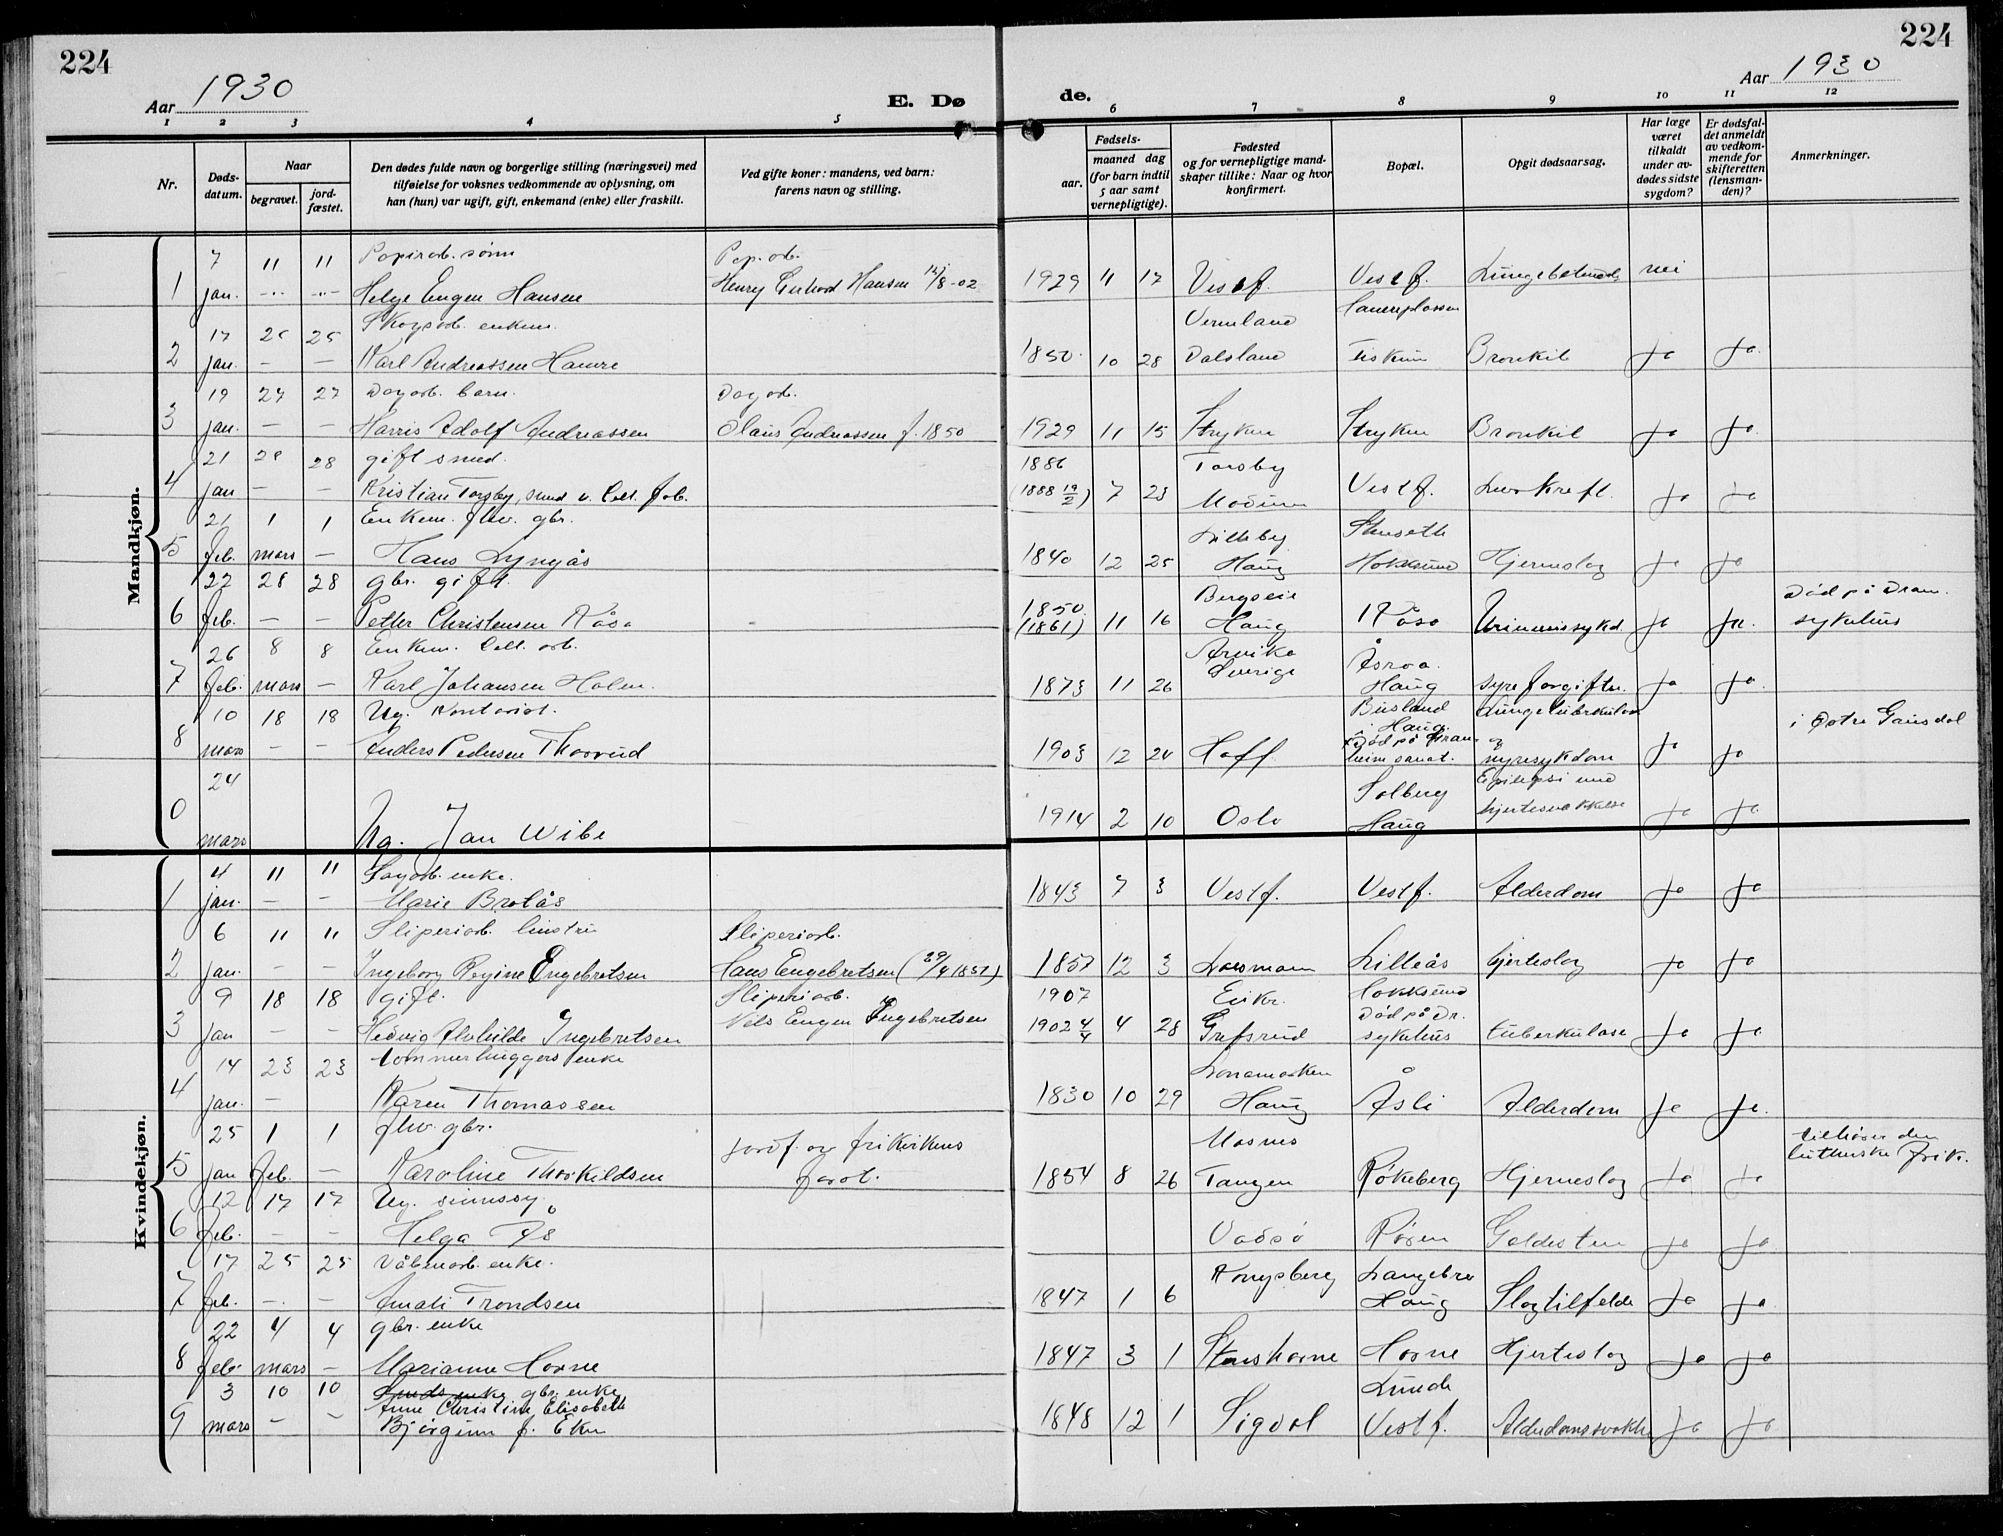 224
224
Aar 1930
E. Dø
de.
Aar 1930
1 2 3 4 5 6 7 8 9 10 11 12
Nr.
Døds-
datum.
Naar
begravet.
jord-
fæstet.
Den dødes fulde navn og borgerlige stilling (næringsvei) med
tilføielse for voksnes vedkommende av oplysning, om
han (hun) var ugift, gift, enkemand (enke) eller fraskilt.
Ved gifte koner: mandens, ved barn:
farens navn og stilling.
Fødsels-
aar.
maaned dag
(for barn indtil
5 aar samt
vernepligtige).
Fødested
og for vernepligtige mand-
skaper tillike: Naar og hvor
konfirmert.
Bopæl.
Opgit dødsaarsag.
Har læge
været
tilkaldt
under av-
dødes sidste
sygdom?
Er dødsfal-
det anmeldt
av vedkom-
mende for
skifteretten
(lensman-
den)?
Anmerkninger.
Mandkjøn.
7 11 11 Papirarb. sønn Pap. arb.
1 jan. - - Helge Eugen Hansen Henry Gerhard Hansen 1929 11 17 Vestf. Vestf. nei
17 25 25 Skogsarb. enkem. Vermland
2 jan. - - Karl Andreassen Hamre 1850 10 28 Dalsland Fiskum Bronkit ja ja
19 27 27 Dagarb. barn. Dagarb.
3 jan. - - Harris Adolf Andreassen Olaus Andreassen f. 1850 1929 11 15 Stryken Stryken Bronkit ja ja
21 28 28 gift smed. 1886 Torsby
4 jan - - Kristian Torsby, smed v. Cell. fab. (1888 19/2) 7 23 Modum Vestf. ja ja
21 1 1 Enkem. fhv. gbr. Lilleby Stenseth
5 feb. mars - Hans Lyngås 1840 12 25 Haug Hokksund Hjerneslag ja ja
22 28 28 gbr. gift. 1850 Død på Dram.
6 feb. - - Petter Christensen Råsa (1861) 11 16 Haug Råsa ja ja. sykehus
26 8 8 Enkem. Cell. arb. Arvika
7 feb. mars - Karl Johansen Holm. 1873 11 26 Sverige Haug syreforgiftn. ja ja
10 18 18 Ug. Kontorist. Busland Lungetuberkulose i Østre Gausdal
8 mars - - Anders Pedersen Thorrud 1903 12 24 Hoff i Haug nyresykdom ja ja
24 Solberg Epilepsi med
0 mars Ug. Jan Wibe 1914 2 10 Oslo Haug hjertesvakkelse ja ja
Kvindekjøn.
4 11 11 enke.
1 jan. - - Marie Bråtås 1843 7 3 Vestf. Vestf. Alderdom ja ja
6 11 11 Sliperiarb. hustru Sliperiarb.
2 jan. - - Ingeborg Regine Engebretsen Hans Engebretsen (29/4 1851) 1857 12 3 Lilleås hjerteslag ja ja
9 18 18 gift. Sliperiarb. 1907 Eiker. Hokksund
3 jan - - Hedvig Alvhilde Ingebretsen Nils Eugen Ingebretsen 1902 4/4 4 28 Grefsrud Død på Dr. sykehus tuberkulose ja ja
14 23 23 tømmerhuggers enke
4 jan. - Karen Thomassen 1830 10 29 Haug Åsli Alderdom ja ja.
25 1 1 fhv. gbr. jordf. og frikirkens Masnes tilhører den
5 jan feb. - Karoline Thorkildsen forst. 1854 8 26 Tangen Røkeberg Hjerneslag ja ja lutherske frik.
12 17 17 Ug. sinnssyg
6 feb. - - Helga Ås Vadsø Røren Galdesten ja ja
17 25 25 Våbenarb. enke. Kongsberg Langebro
7 feb. - - Amali Trondsen 1847 1 6 Haug Slagtilfelde ja ja
22 4 4 gbr. enke
8 feb. mars - Marianne Horne 1847 3 1 Stenshorne Horne Hjerteslag ja ja
3 10 10 Smeds enke gbr. enke Lunde
Anne Christine Elisabeth
9 mars - - Bjørgum f. Eker 1848 12 1 Sigdal Vestf. ja ja